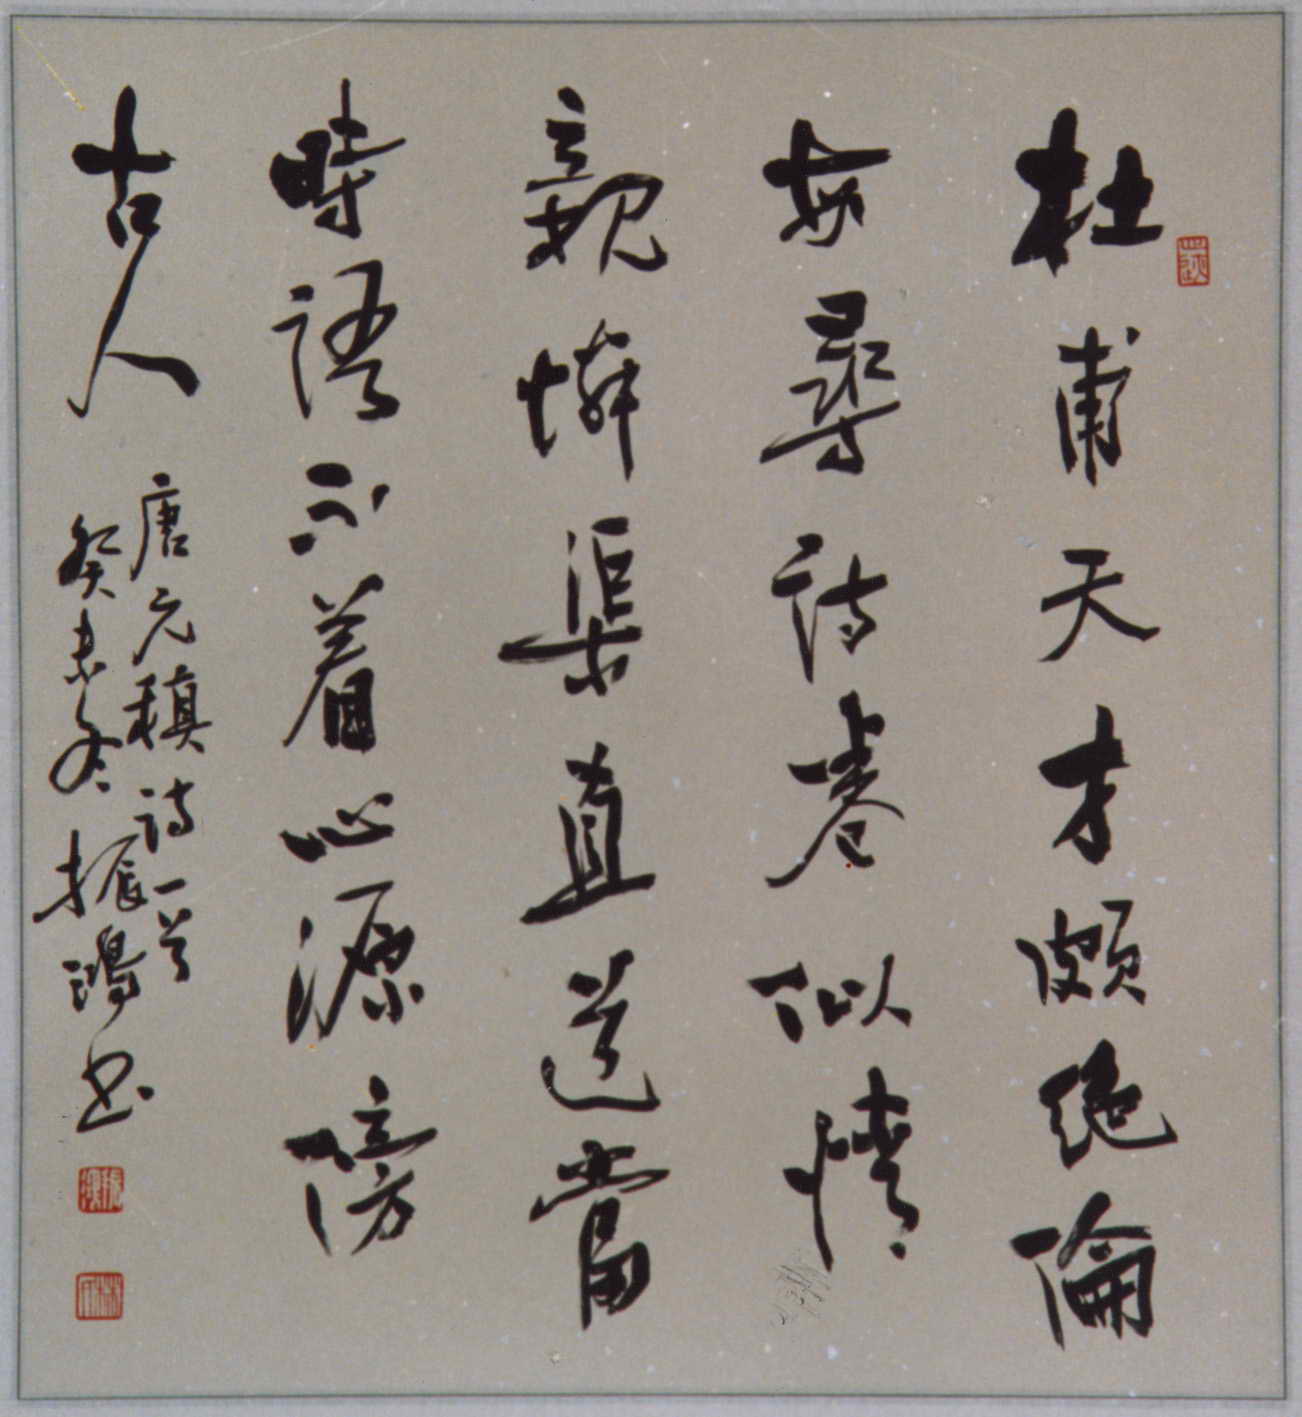 杜甫天才頗絶倫
每尋詩卷似情
親憐渠直道當
時語不着心源傍
古人
唐元稹詩一首
癸未冬振鴻书